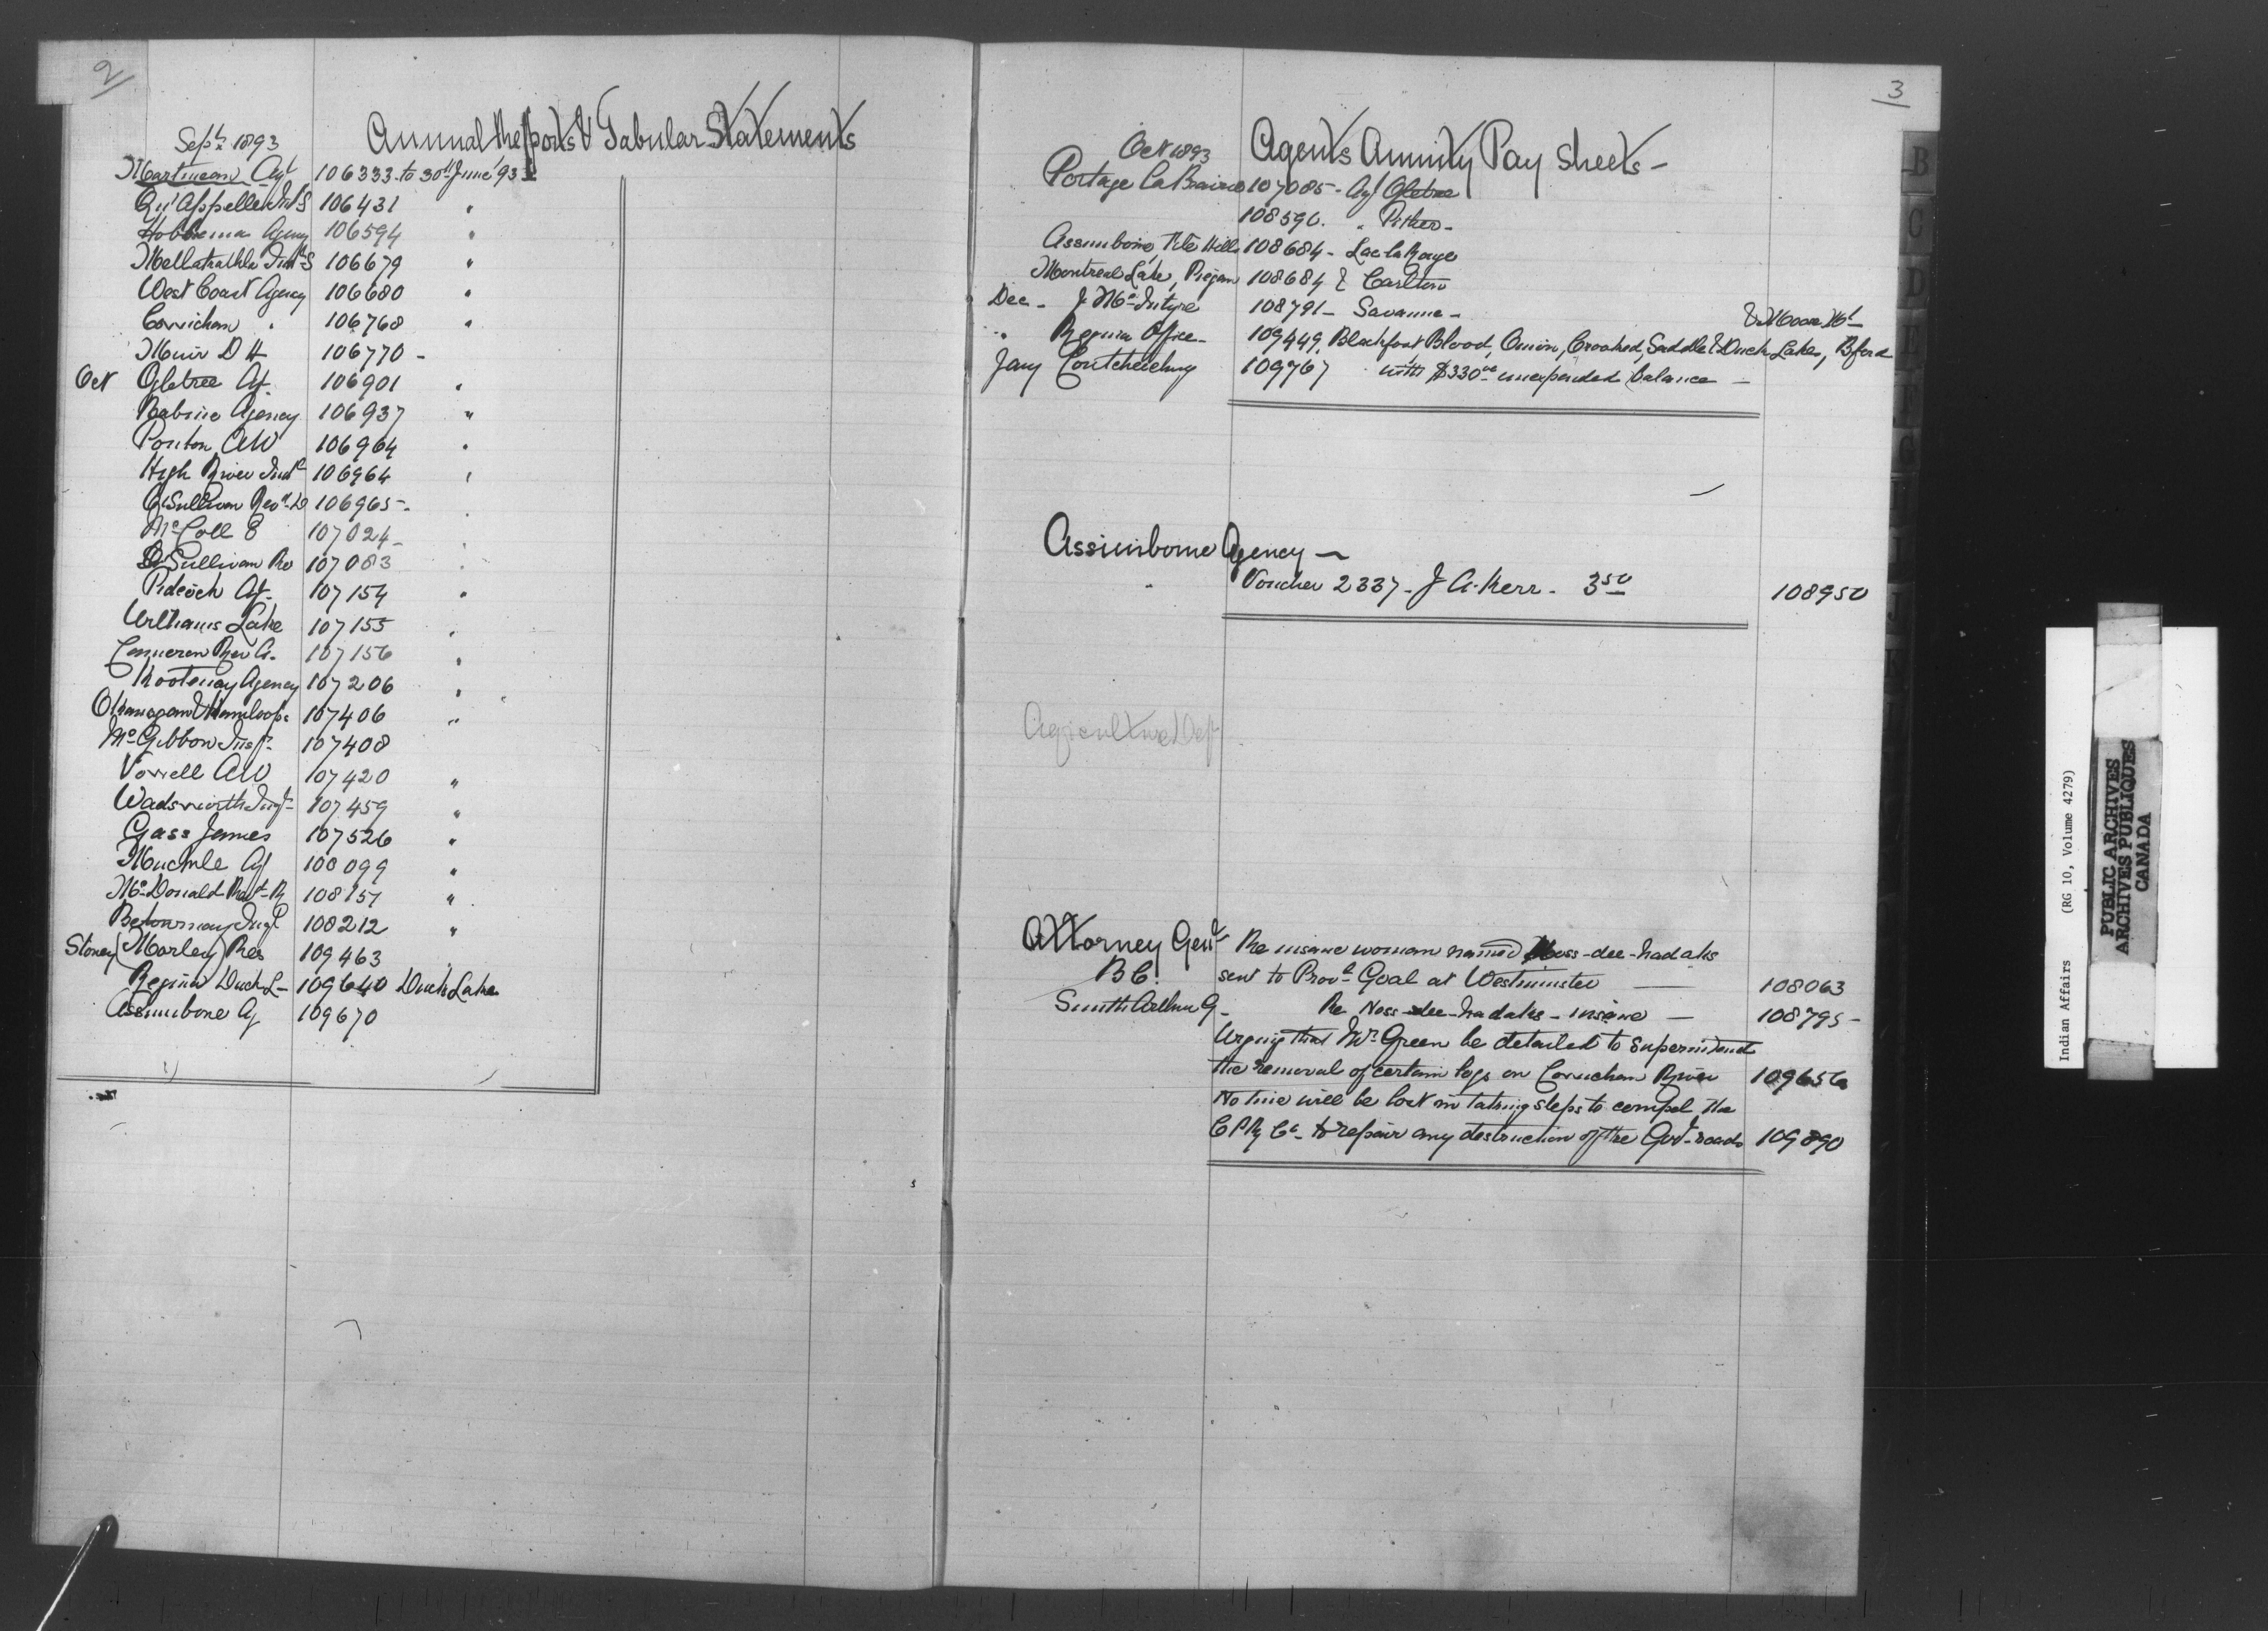 2
Sept 1893
Annual Reports & Tabular Statements
Martineau Agt 106333 to 30th June '93
Qu'Appelle Ind S 106431 "
Hobbema Agency 106594 "
Metlakathla Ind S 106679 "
West Coast Agency 106680 "
Cowichan " 106768 "
Muir D H 106770 -
Oct Ogletree Agt 106901 "
Babine Agency 106937 "
Ponton AW 106964 "
High River Indl 106964 "
O'Sullivan Revd D 106965 - "
McColl E 107024 - "
O'Sullivan Rev 107083 "
Pidcock Agt 107154 "
Williams Lake 107155 "
Cameron Rev A. 107156 "
Kootenay Agency 107206 "
Okanagan & Kamloops 107406 "
McGibbon Insp. 107408
Vowell AW 107420 "
Wadsworth Insp 107459 "
Gass James 107526 "
Muckle Agt 108099 "
McDonald Revd R 108157 "
Betournay Jugl 108212 "
Stoney (Morley) Res 109463 "
Regina Duck L - 109640 Duck Lake
Assinibone Ag 109670
3
Oct 1893
Agents Annuity Pay Sheets -
Portage La Prairie 107085 - Agt Ogletree
108590. " Pither -
Assinboine, File Hills 108684 - Lac la Ronge
Montreal Lake, Piegan 108684 & Carlton
Dec - J McIntyre 108791 - Savanne -
& Moose Mt -
" Regina Office - 109449. Blackfoot Blood, Onion, Crooked, Saddle & Duck Lakes, Bford
Jany Coutcheching 109767 with $330 00 unexpended balance -
Assiniboine Agency -
" Voucher 2337 - J A. Kerr. 3 50 108950
Agriculture Dept
Attorney Genl Re insane woman named Noss-dee-hadaks
B C. sent to Provl Goal at Westminster - 108063
Smith Arthur G - Re Noss-dee-hadaks - insane - 108795 -
Urging that Mr Green be detailed to superintend
the removal of certain logs on Cowichan River 109656
No time will be lost in taking steps to compel the
C P Ry Co - to repair any destruction of the Govt roads 109890
B
C
D
E
F
G
H
I
J
K
Indian Affairs (RG 10, Volume 4279)
PUBLIC ARCHIVES
ARCHIVES PUBLIQUES
CANADA